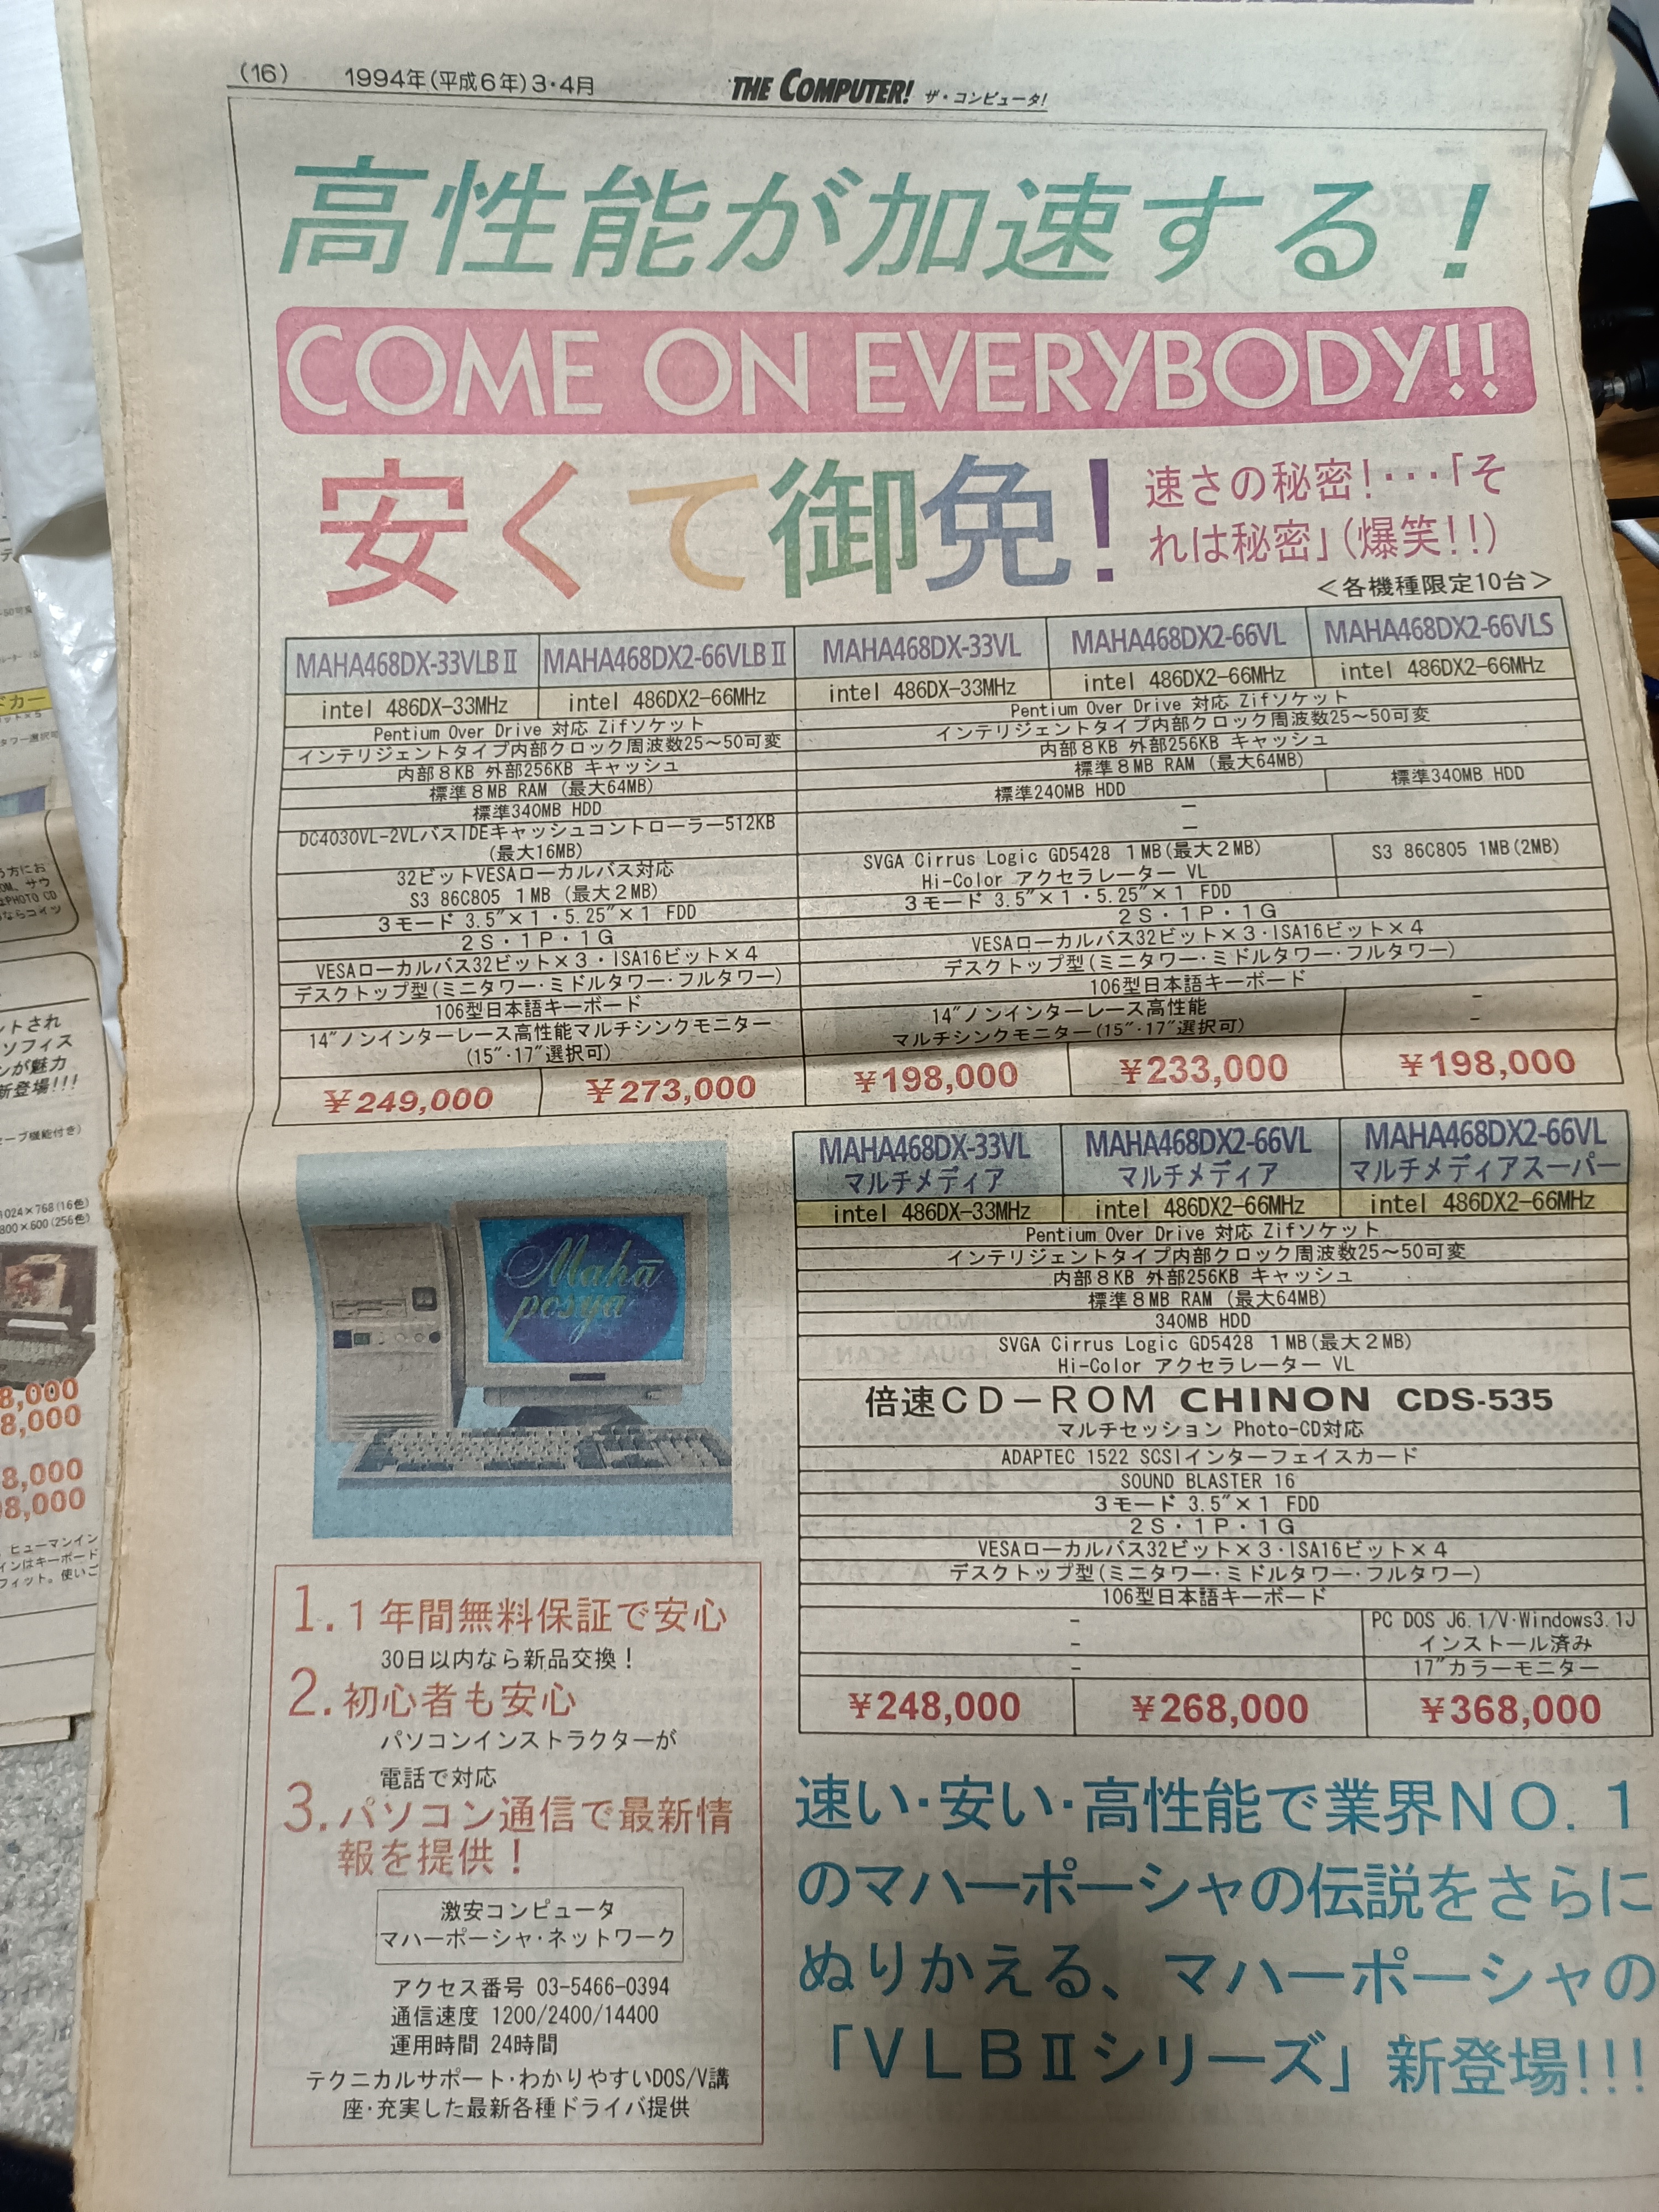 (16)　1994年(平成6年)3・4月　THE COMPUTER! ザ・コンピュータ!
高性能が加速する！
COME ON EVERYBODY!!
安くて御免！
速さの秘密！･･･「そ
れは秘密」(爆笑!!)
＜各機種限定10台＞
MAHA468DX-33VLBⅡ　MAHA468DX2-66VLBⅡ
intel 486DX-33MHz　intel 486DX2-66MHz
Pentium Over Drive 対応 Zifソケット
インテリジェントタイプ内部クロック周波数25～50可変
内部8KB 外部256KB キャッシュ
標準8MB RAM (最大64MB)
標準340MB HDD
DC4030VL-2VLバスIDEキャッシュコントローラー512KB
(最大16MB)
32ビットVESAローカルバス対応
S3 86C805 1MB (最大2MB)
3モード 3.5″×1・5.25″×1 FDD
2S・1P・1G
VESAローカルバス32ビット×3・ISA16ビット×4
デスクトップ型(ミニタワー・ミドルタワー・フルタワー)
106型日本語キーボード
14″ノンインターレース高性能マルチシンクモニター
(15″・17″選択可)
¥249,000　¥273,000
MAHA468DX-33VL　MAHA468DX2-66VL　MAHA468DX2-66VLS
intel 486DX-33MHz　intel 486DX2-66MHz　intel 486DX2-66MHz
Pentium Over Drive 対応 Zifソケット
インテリジェントタイプ内部クロック周波数25～50可変
内部8KB 外部256KB キャッシュ
標準8MB RAM (最大64MB)
標準240MB HDD　標準340MB HDD
－
－
SVGA Cirrus Logic GD5428 1MB(最大2MB)　S3 86C805 1MB(2MB)
Hi-Color アクセラレーター VL
3モード 3.5″×1・5.25″×1 FDD
2S・1P・1G
VESAローカルバス32ビット×3・ISA16ビット×4
デスクトップ型(ミニタワー・ミドルタワー・フルタワー)
106型日本語キーボード
14″ノンインターレース高性能　－
マルチシンクモニター(15″・17″選択可)　－
¥198,000　¥233,000　¥198,000
Mahā
posya
MAHA468DX-33VL　MAHA468DX2-66VL　MAHA468DX2-66VL
マルチメディア　マルチメディア　マルチメディアスーパー
intel 486DX-33MHz　intel 486DX2-66MHz　intel 486DX2-66MHz
Pentium Over Drive 対応 Zifソケット
インテリジェントタイプ内部クロック周波数25～50可変
内部8KB 外部256KB キャッシュ
標準8MB RAM (最大64MB)
340MB HDD
SVGA Cirrus Logic GD5428 1MB(最大2MB)
Hi-Color アクセラレーター VL
倍速CD－ROM CHINON CDS-535
マルチセッション Photo-CD対応
ADAPTEC 1522 SCSIインターフェイスカード
SOUND BLASTER 16
3モード 3.5″×1 FDD
2S・1P・1G
VESAローカルバス32ビット×3・ISA16ビット×4
デスクトップ型(ミニタワー・ミドルタワー・フルタワー)
106型日本語キーボード
－　PC DOS J6.1/V・Windows3.1J
－　インストール済み
－　17″カラーモニター
¥248,000　¥268,000　¥368,000
1.1年間無料保証で安心
30日以内なら新品交換！
2.初心者も安心
パソコンインストラクターが
電話で対応
3.パソコン通信で最新情
報を提供！
激安コンピュータ
マハーポーシャ・ネットワーク
アクセス番号 03-5466-0394
通信速度 1200/2400/14400
運用時間 24時間
テクニカルサポート・わかりやすいDOS/V講
座・充実した最新各種ドライバ提供
速い・安い・高性能で業界NO.1
のマハーポーシャの伝説をさらに
ぬりかえる、マハーポーシャの
「VLBⅡシリーズ」新登場!!!
ドカー
タワー選択可
う方にお
OM、サウ
はPHOTO CD
ならコイツ
ントされ
ソフィス
ンが魅力
新登場!!!
セーブ機能付き)
1024×768(16色)
800×600(256色)
8,000
8,000
8,000
98,000
、ヒューマンイン
インはキーボード
フィット。使いご